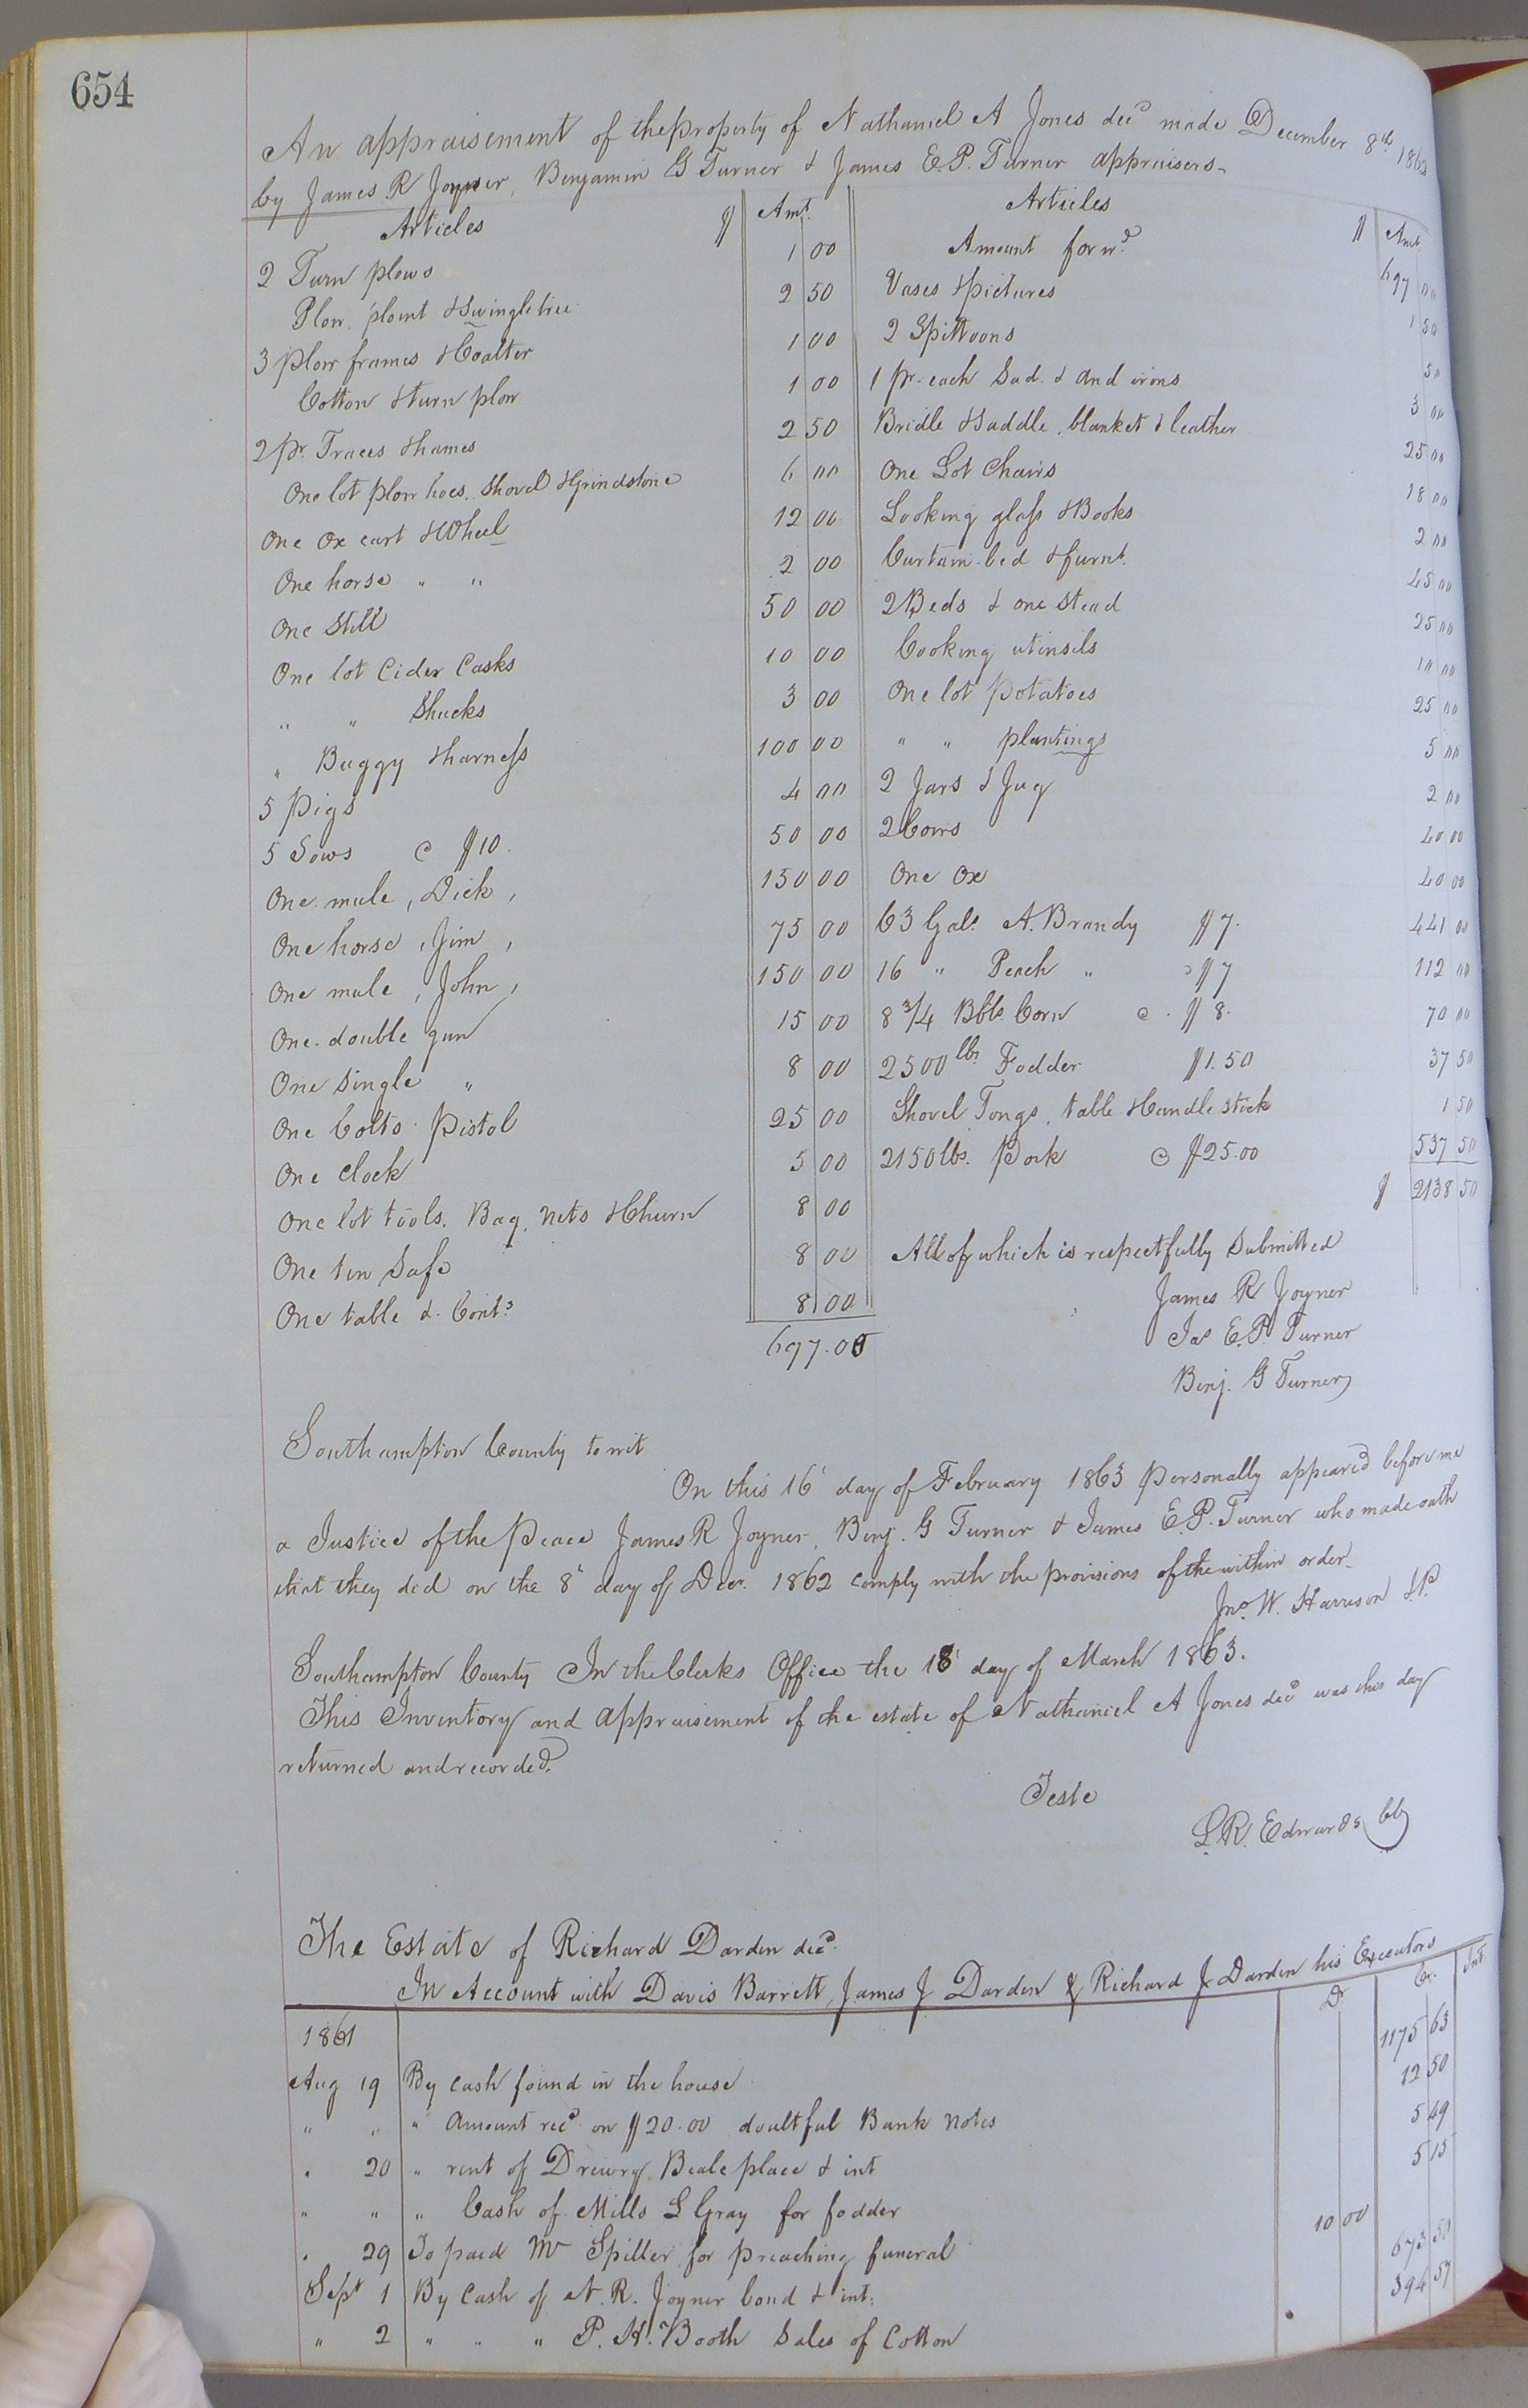 654
An appraisement of the property of Nathaniel A Jones decd made December 8th 1862
by James R Joyner, Benjamin G Turner & James E.P. Turner appraisers-
Articles $ Amt. Articles $ Amt.
2 Turn plows 1 00 Amount forwd. 697 00
Plow, point & Swingletree 2 50 Vases & pictures 1 50
3 plow frames & Coalter 1 00 2 Spittoons 50
Cotton & turn plow 1 00 1 pr. each Sad. & and irons 3 00
2 pr. Traces & hames 2 50 Bridle & Saddle, blanket & leather 25 00
One lot plow hoes, Shovel & Grindstone 6 00 One Lot Chairs 18 00
One Ox cart & Wheel 12 00 Looking glass & Books 2 00
One horse " " 2 00 Curtain bed & furnt. 45 00
One Still 50 00 2 Beds & one stead 25 00
One lot Cider Casks 10 00 Cooking utinsils 10 00
" " Shucks 3 00 One lot Potatoes 25 00
" Buggy & harness 100 00 " " plantings 5 00
5 Pigs 4 00 2 Jars & Jug 2 00
5 Sows @ $10. 50 00 2 Cows 40 00
One mule, Dick, 150 00 One Ox 40 00
One horse, Jim, 75 00 63 Gals. A. Brandy $7. 441 00
One mule, John, 150 00 16 " Peach " @ $7 112 00
One double gun 15 00 8 3/4 Bbls. Corn @ $8. 70 00
One single " 8 00 2500 lbs Fodder $1.50 37 50
One Colts Pistol 25 00 Shovel, Tongs, table & Candle stick 1 50
One Clock 5 00 2150 lbs. Pork @ $25.00 537 50
One lot tools, Bag, nets & Churn 8 00 $ 2138 50
One tin Safe 8 00 All of which is respectfully Submitted
One table & Conts 8 00 James R Joyner
697.00 Jas E.P. Turner
Benj. G Turner
Southampton County to wit
On this 16 day of February 1863 personally appeared before me
a Justice of the Peace James R Joyner, Benj. G Turner & James E.P. Turner who made oath
that they did on the 8 day of Decr. 1862 comply with the provisions of the within order-
Jno. W. Harrison J.P.
Southampton County In the Clerks Office the 18 day of March 1863.
This Inventory and appraisement of the estate of Nathaniel A Jones decd was this day
returned and recorded.
Teste
L.R. Edwards Clk
The Estate of Richard Darden decd.
In Account with Davis Barrett, James J Darden & Richard J Darden his Executors
1861 Dr Cr. Int.
Aug 19 By cash found in the house 1175 63
" " " Amount recd on $20.00 doubtful Bank notes 12 50
" 20 " rent of Drewry Beale place & int 5 49
" " " Cash of Mills L Gray for fodder 5 15
" 29 To paid Mr Spiller for preaching funeral 10 00
Sept 1 By Cash of N. R. Joyner bond & int: 673 50
" 2 " " " P. H. Booth Sales of Cotton 394 57